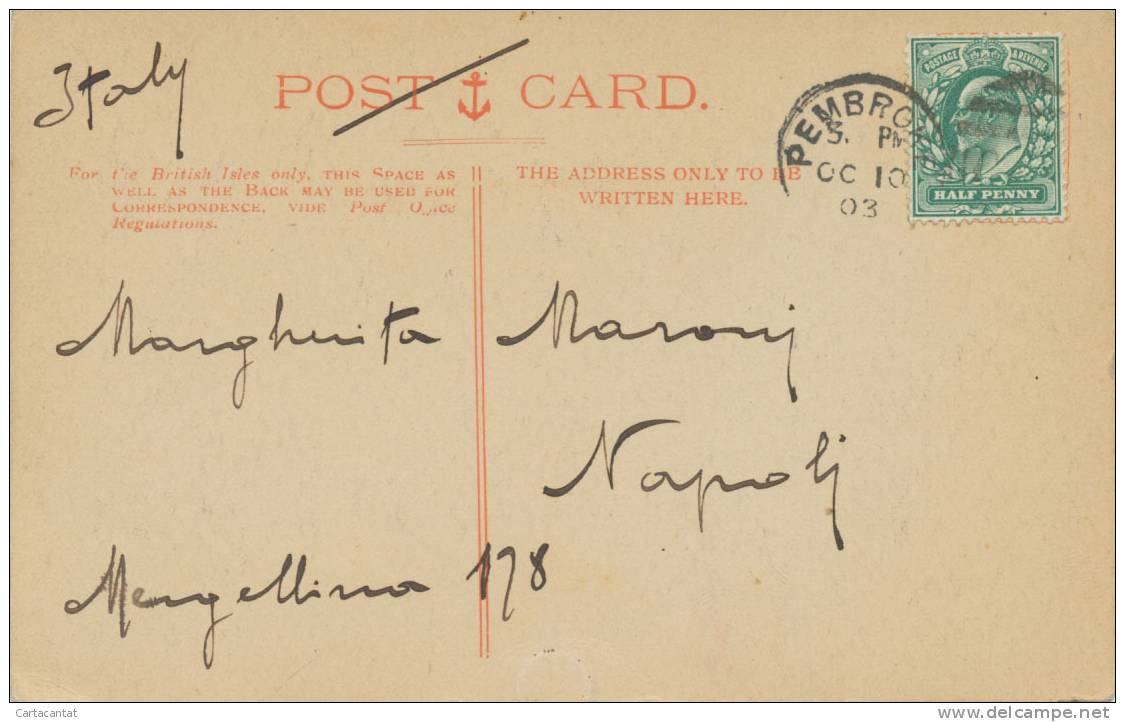 Italy
POST CARD.
For the British Isles only, THIS SPACE AS
WELL AS THE BACK MAY BE USED FOR
CORRESPONDENCE, VIDE Post Office
Regulations.
THE ADDRESS ONLY TO BE
WRITTEN HERE.
PEMBROKE
5. PM
OC 10
03
POSTAGE & REVENUE
HALF PENNY
Margherita Maroni
Napoli
Mergellina 178
Cartacantat
www.delcampe.net